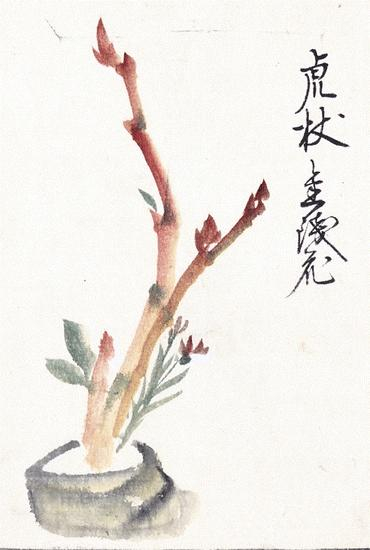 虎杖
圭残花